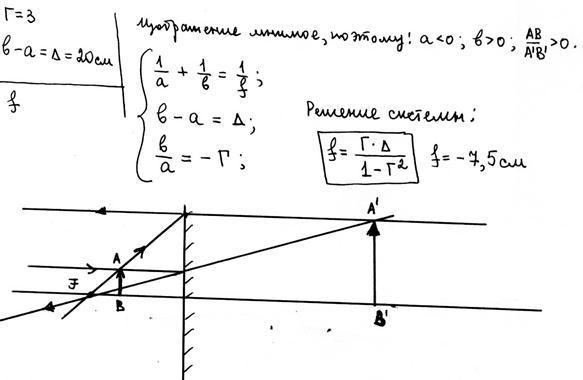 Г=3
в-а=Δ=20см
f
Изображение мнимое, поэтому: a<0; в>0; AB/A'B'>0.
1/a + 1/в = 1/f;
в-а=Δ;
в/a = -Г;
Решение системы:
f = Г·Δ/1-Г² f=-7,5см
A'
A
F
B
B'